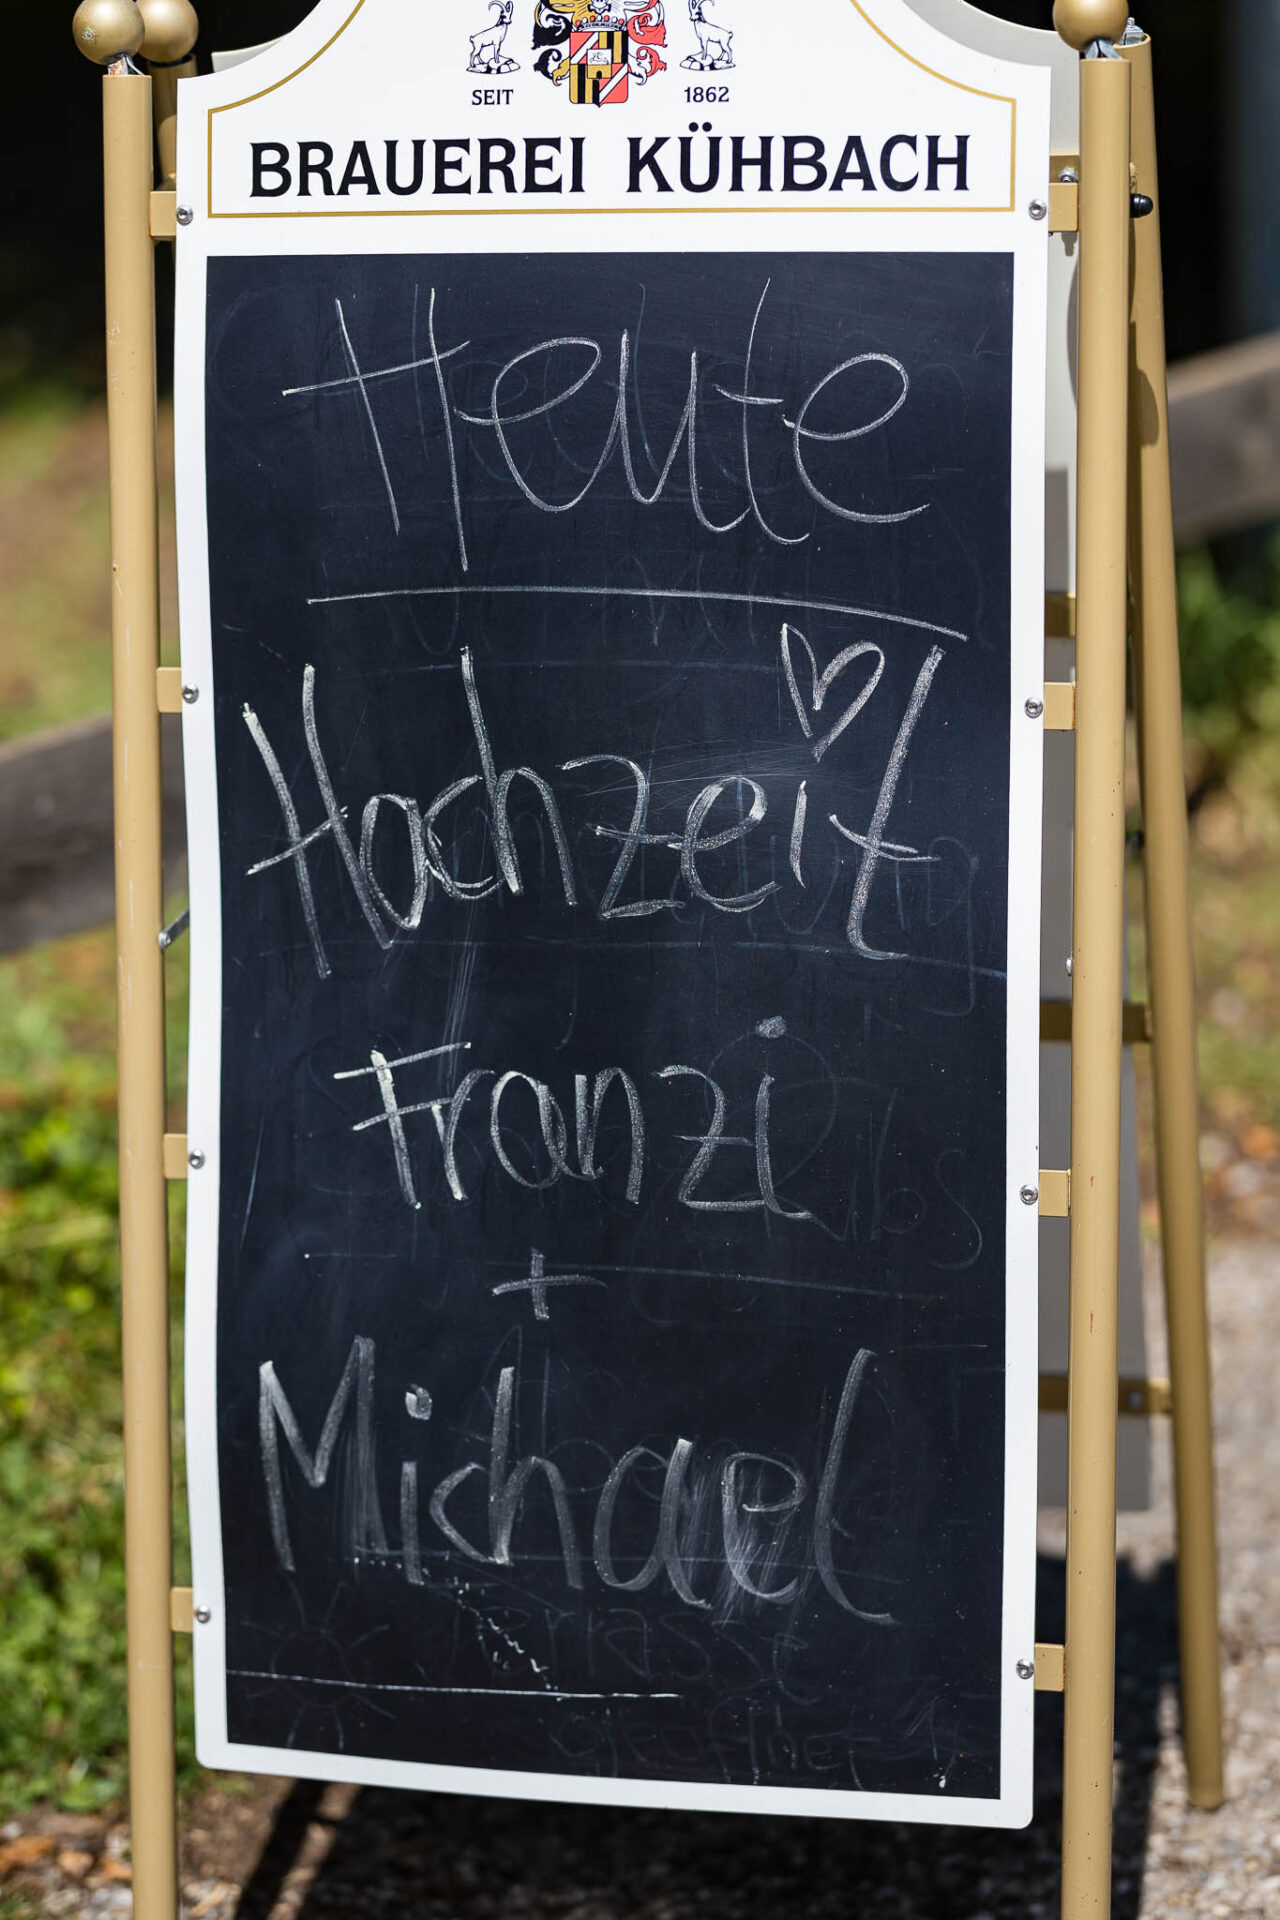 SEIT 1862
BRAUEREI KÜHBACH
Heute
Hochzeit
Franzi
+
Michael